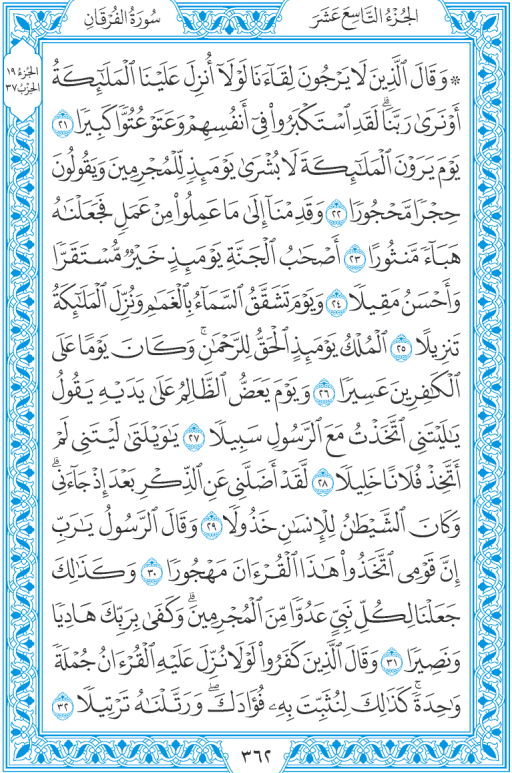 سُورَةُ الفُرْقَانِ
الجُزْءُ التَّاسِعَ عَشَرَ
الجُزْءُ ١٩
الحِزْبُ ٣٧
۞ وَقَالَ ٱلَّذِينَ لَا يَرْجُونَ لِقَآءَنَا لَوْلَآ أُنزِلَ عَلَيْنَا ٱلْمَلَٰٓئِكَةُ
أَوْ نَرَىٰ رَبَّنَاۗ لَقَدِ ٱسْتَكْبَرُوا۟ فِىٓ أَنفُسِهِمْ وَعَتَوْ عُتُوًّا كَبِيرًا ٢١
يَوْمَ يَرَوْنَ ٱلْمَلَٰٓئِكَةَ لَا بُشْرَىٰ يَوْمَئِذٍ لِّلْمُجْرِمِينَ وَيَقُولُونَ
حِجْرًا مَّحْجُورًا ٢٢ وَقَدِمْنَآ إِلَىٰ مَا عَمِلُوا۟ مِنْ عَمَلٍ فَجَعَلْنَٰهُ
هَبَآءً مَّنثُورًا ٢٣ أَصْحَٰبُ ٱلْجَنَّةِ يَوْمَئِذٍ خَيْرٌ مُّسْتَقَرًّا
وَأَحْسَنُ مَقِيلًا ٢٤ وَيَوْمَ تَشَقَّقُ ٱلسَّمَآءُ بِٱلْغَمَٰمِ وَنُزِّلَ ٱلْمَلَٰٓئِكَةُ
تَنزِيلًا ٢٥ ٱلْمُلْكُ يَوْمَئِذٍ ٱلْحَقُّ لِلرَّحْمَٰنِۚ وَكَانَ يَوْمًا عَلَى
ٱلْكَٰفِرِينَ عَسِيرًا ٢٦ وَيَوْمَ يَعَضُّ ٱلظَّالِمُ عَلَىٰ يَدَيْهِ يَقُولُ
يَٰلَيْتَنِى ٱتَّخَذْتُ مَعَ ٱلرَّسُولِ سَبِيلًا ٢٧ يَٰوَيْلَتَىٰ لَيْتَنِى لَمْ
أَتَّخِذْ فُلَانًا خَلِيلًا ٢٨ لَّقَدْ أَضَلَّنِى عَنِ ٱلذِّكْرِ بَعْدَ إِذْ جَآءَنِىۗ
وَكَانَ ٱلشَّيْطَٰنُ لِلْإِنسَٰنِ خَذُولًا ٢٩ وَقَالَ ٱلرَّسُولُ يَٰرَبِّ
إِنَّ قَوْمِى ٱتَّخَذُوا۟ هَٰذَا ٱلْقُرْءَانَ مَهْجُورًا ٣٠ وَكَذَٰلِكَ
جَعَلْنَا لِكُلِّ نَبِىٍّ عَدُوًّا مِّنَ ٱلْمُجْرِمِينَۗ وَكَفَىٰ بِرَبِّكَ هَادِيًا
وَنَصِيرًا ٣١ وَقَالَ ٱلَّذِينَ كَفَرُوا۟ لَوْلَا نُزِّلَ عَلَيْهِ ٱلْقُرْءَانُ جُمْلَةً
وَٰحِدَةًۚ كَذَٰلِكَ لِنُثَبِّتَ بِهِۦ فُؤَادَكَۖ وَرَتَّلْنَٰهُ تَرْتِيلًا ٣٢
٣٦٢